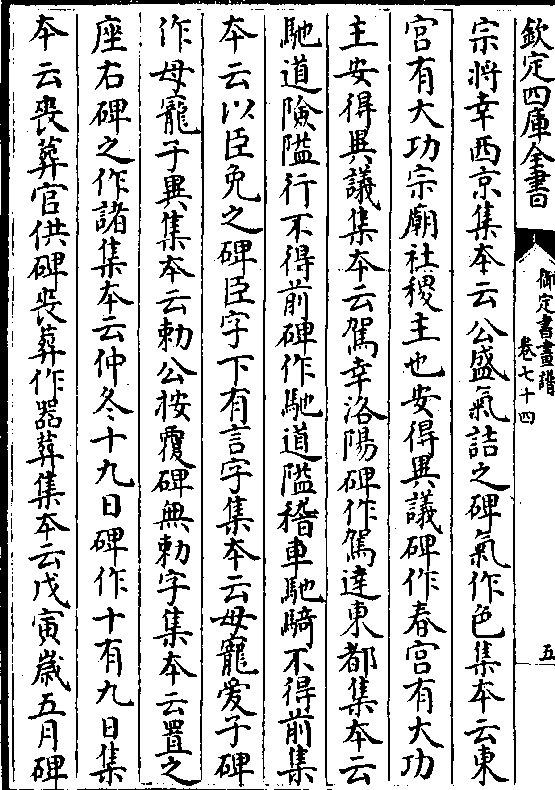 欽定四庫全書
御定書畫譜
卷七十四
五
宗將幸西京集本云公盛氣詰之碑氣作色集本云東
宮有大功宗廟社稷主也安得異議碑作春宮有大功
主安得異議集本云駕幸洛陽碑作駕達東都集本云
馳道險隘行不得前碑作馳道隘稽車馳騎不得前集
本云以臣免之碑臣字下有言字集本云母寵愛子碑
作母寵子異集本云勅公按覆碑無勅字集本云置之
座右碑之作諸集本云仲冬十九日碑作十有九日集
本云喪葬官供碑喪葬作器葬集本云戊寅歲五月碑